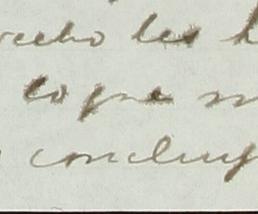 recho les h
lo que m
concluy